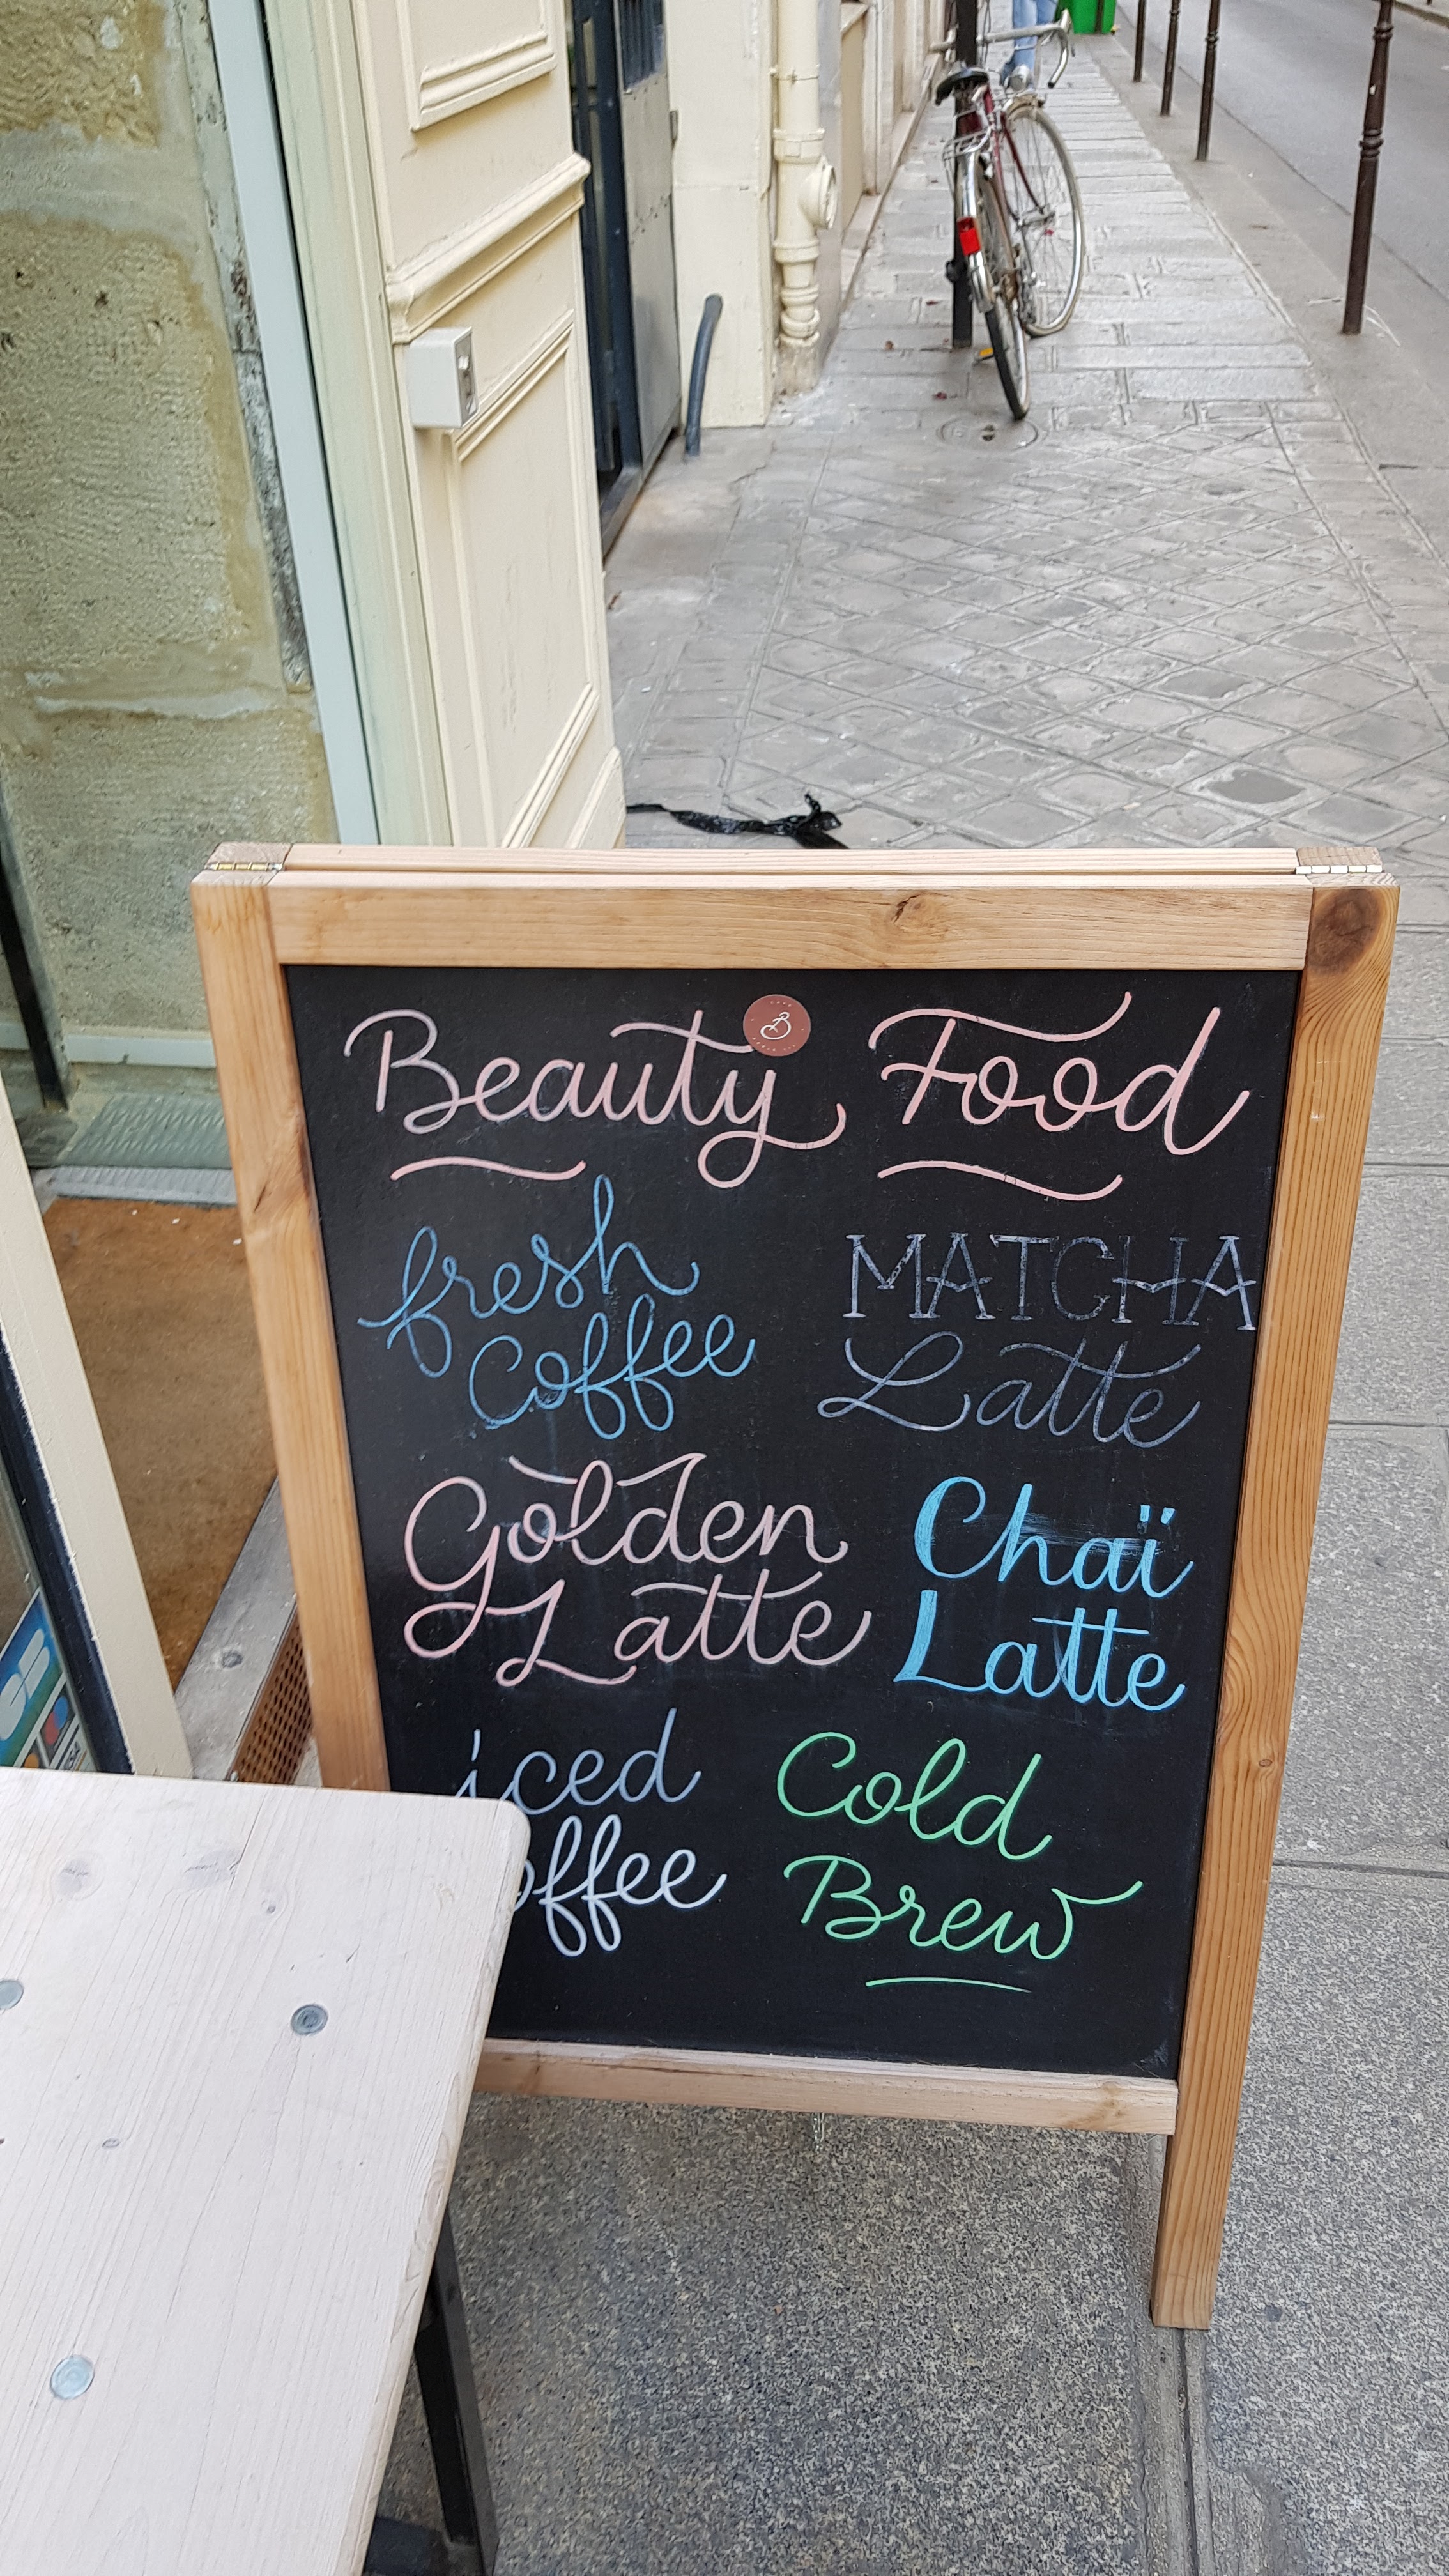 Beauty Food
fresh
Coffee
MATCHA
Latte
Golden
Latte
Chaï
Latte
iced
offee
Cold
Brew